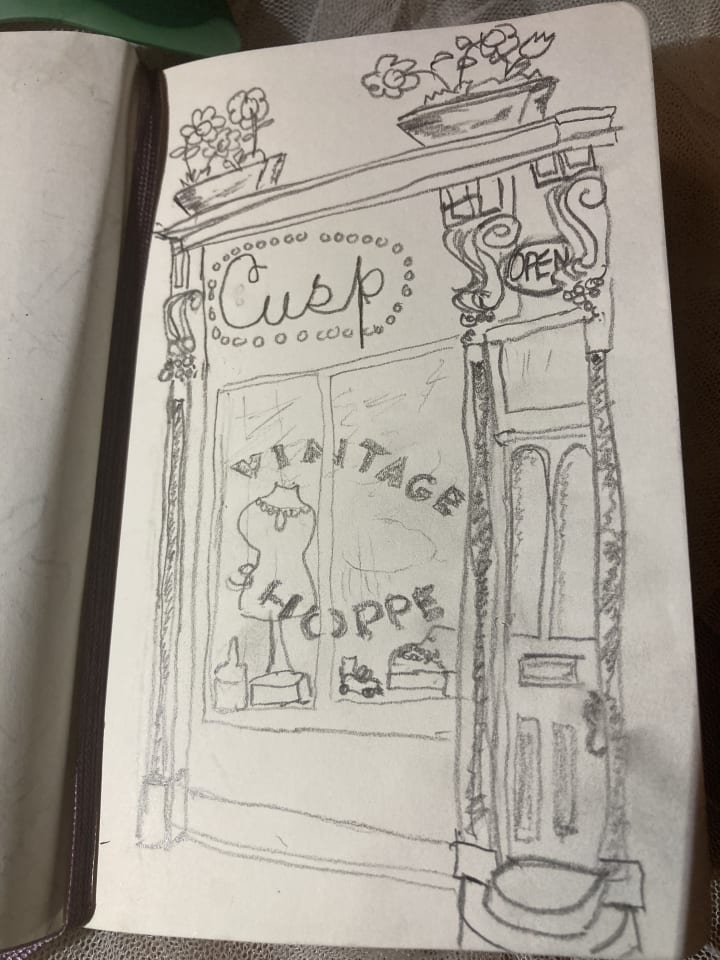 Cusp
OPEN
VINTAGE
SHOPPE